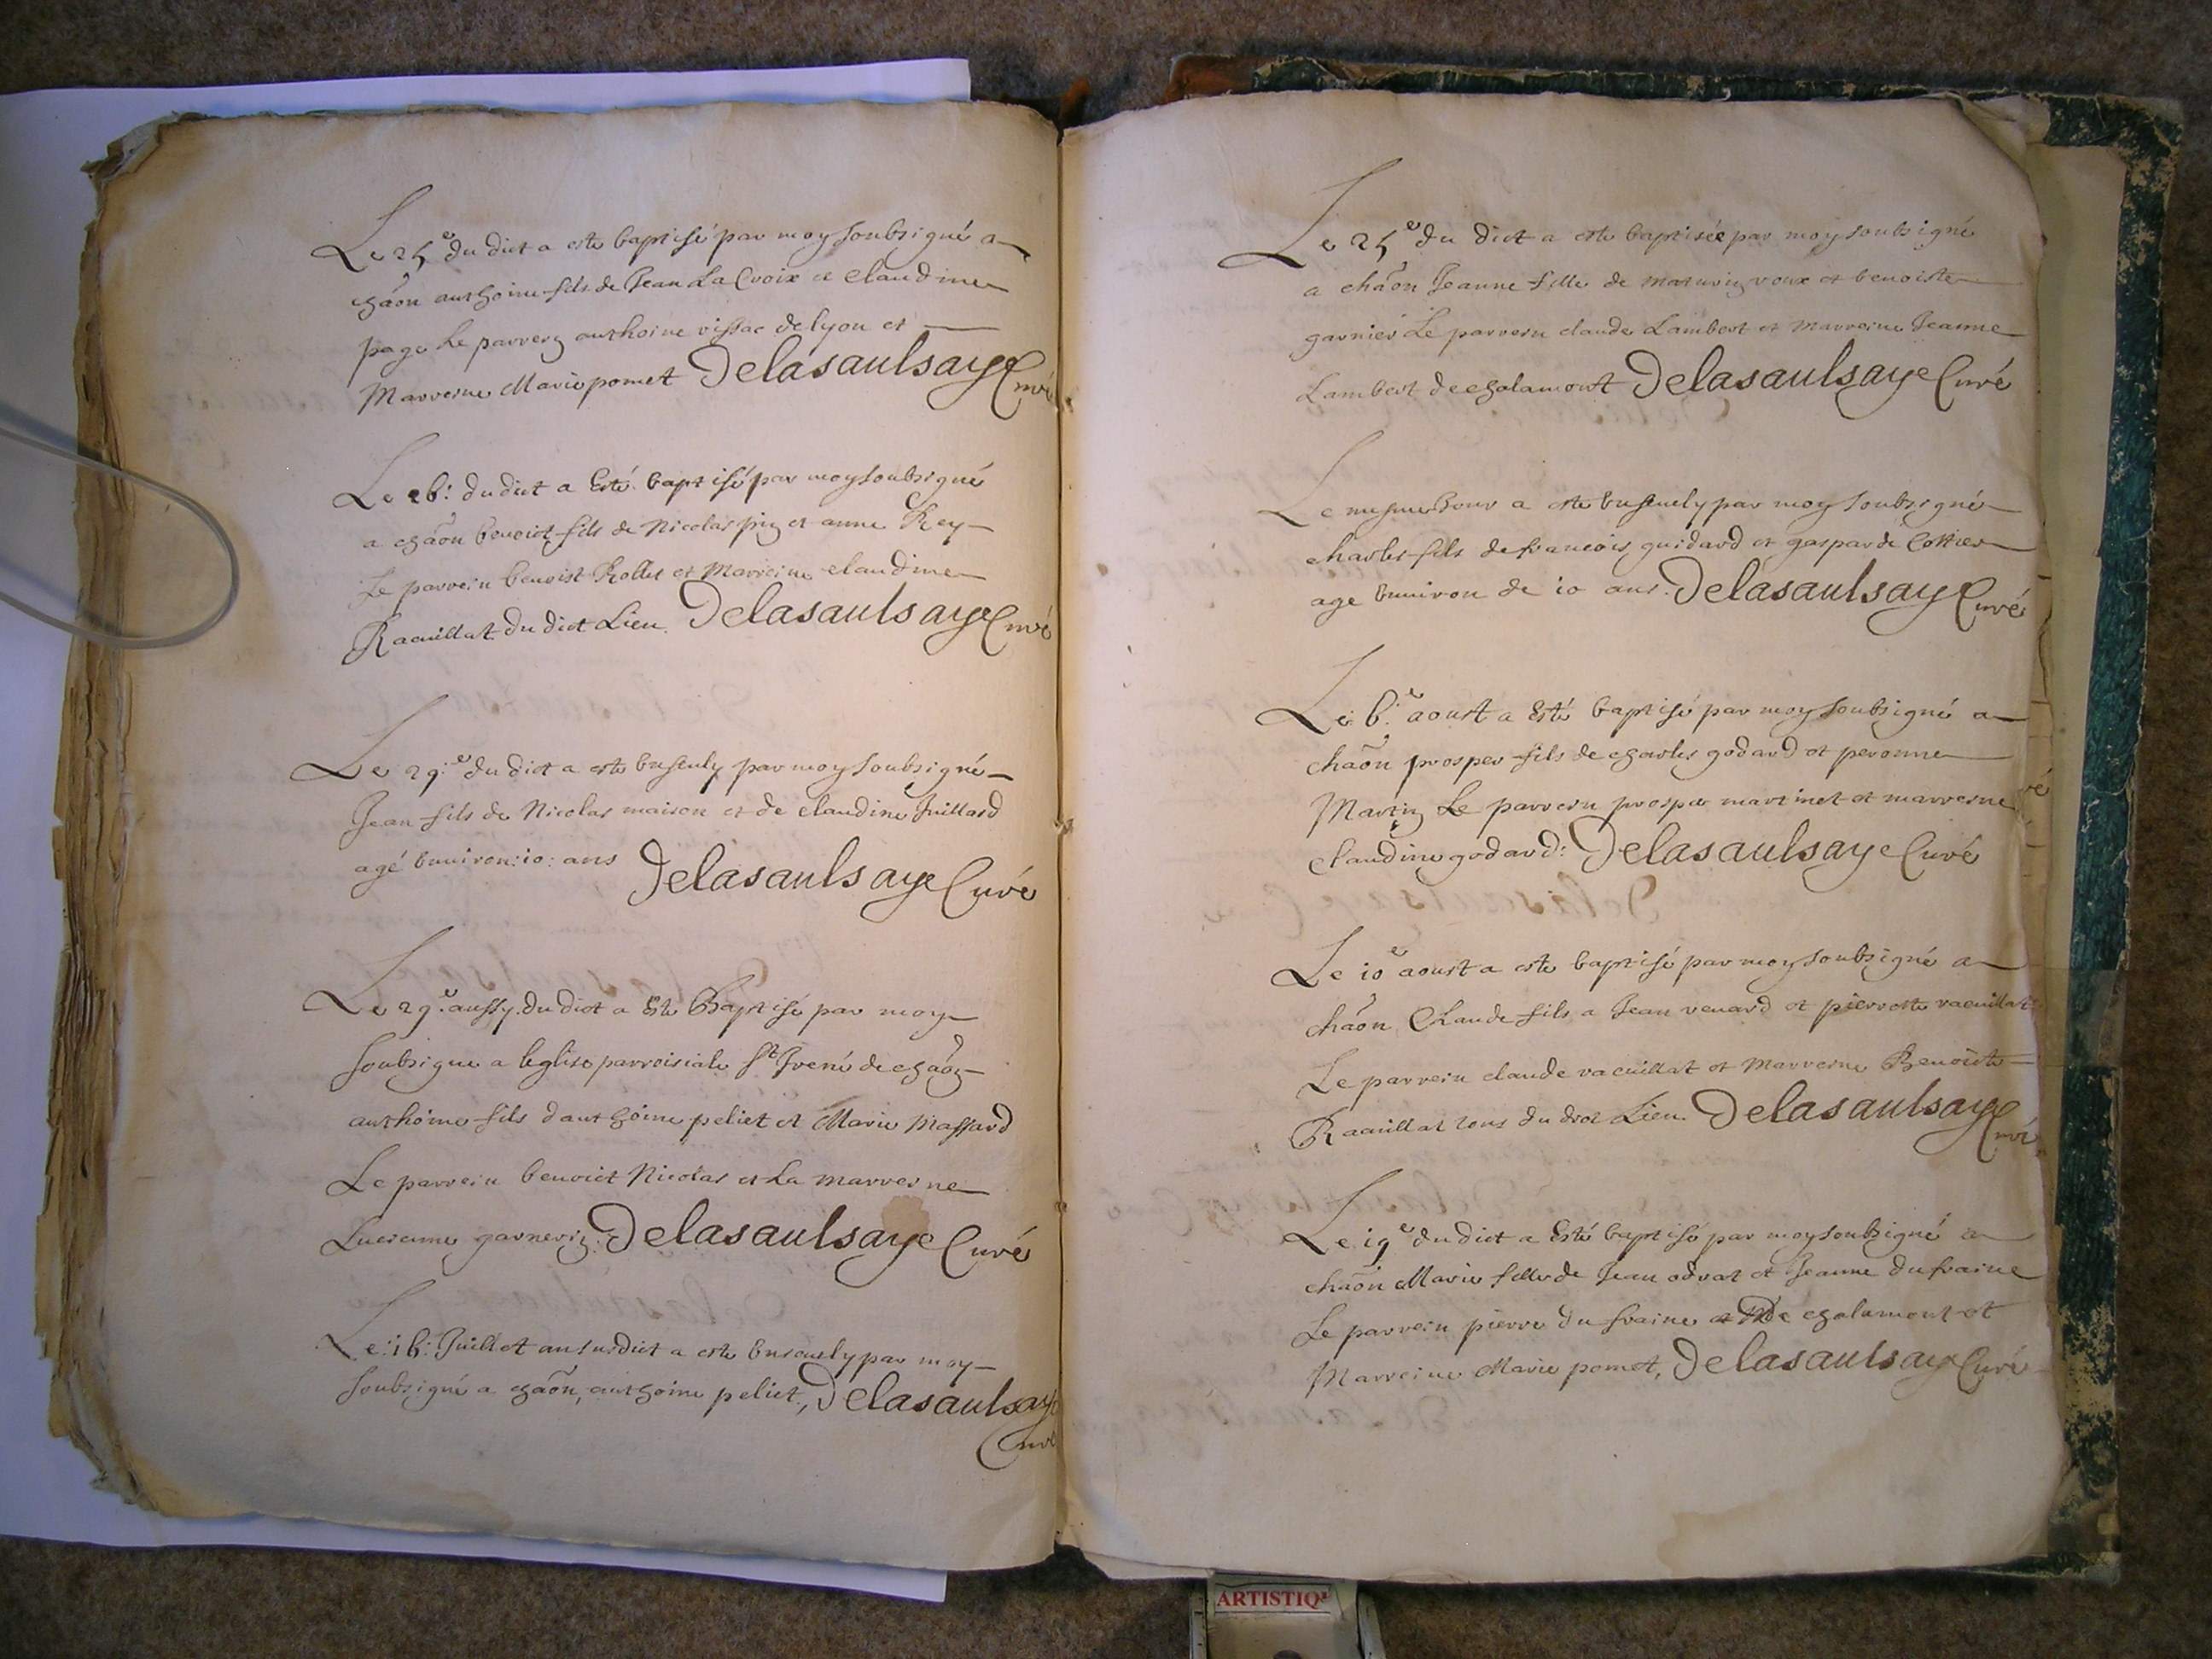 Le 25e du dict a este baptisé par moy soubsigné a
chãon anthoine fils de Jean La Croix et claudine
page Le parrein anthoine vissac de lyon et
Marreine Marie pomet Delasaulsaye Curé
Le 26: du dict a Esté baptisé par moy soubsigné
a chãon benoict fils de Nicolas pin et anne Rey
Le parrein benoist Rollet et Marreine claudine
Raccuillat du dict Lieu. Delasaulsaye Curé
Le 29:e du dict a este Ensevely par moy soubsigné
Jean fils de Nicolas maison et de claudine Juillard
agé Environ: 10: ans Delasaulsaye Curé
Le 29:e aussy du dict a Este Baptisé par moy
soubsigne a leglise parroisiale St Irené de chãon
anthoine fils danthoine peliet et Marie Massard
Le parrein benoict Nicolas et La marreine
garnerin: Delasaulsaye Curé
Le: 16: Juillet an susdict a este Ensevely par moy
soubsigné a chãon, anthoine peliet, Delasaulsaye
Curé
Le 25e du dict a este baptisée par moy soubsigné
a chãon Jeanne fille de maturin roux et benoiste
garnier Le parrein claude Lambert et Marreine Jeanne
Lambert de chalamont Delasaulsaye Curé
Le mesme Jour a este Ensevely par moy soubsigné
charles fils de francois guidard et gasparde Cottier
age Environ de 10 ans. Delasaulsaye Curé
Le 6:e aoust a Esté baptisé par moy soubsigné a
chãon prosper fils de charles godard et peronne
Martin Le parrein prosper martinet et marreine
claudine godard: Delasaulsaye Curé
Le 10e aoust a este baptisé par moy soubsigné a
chãon Claude fils a Jean renard et pierrette racuillat
Le parrein claude racuillat et Marreine Benoicte
Racuillat tous du dict Lieu Delasaulsaye Curé
Le 19e du dict a Esté baptisé par moy soubsigné a
chãon Marie fille de Jean odrat et Jeanne dufraine
Le parrein pierre du fraine de chalamont et
Marreine Marie pomet, Delasaulsaye Curé
ARTISTIQ